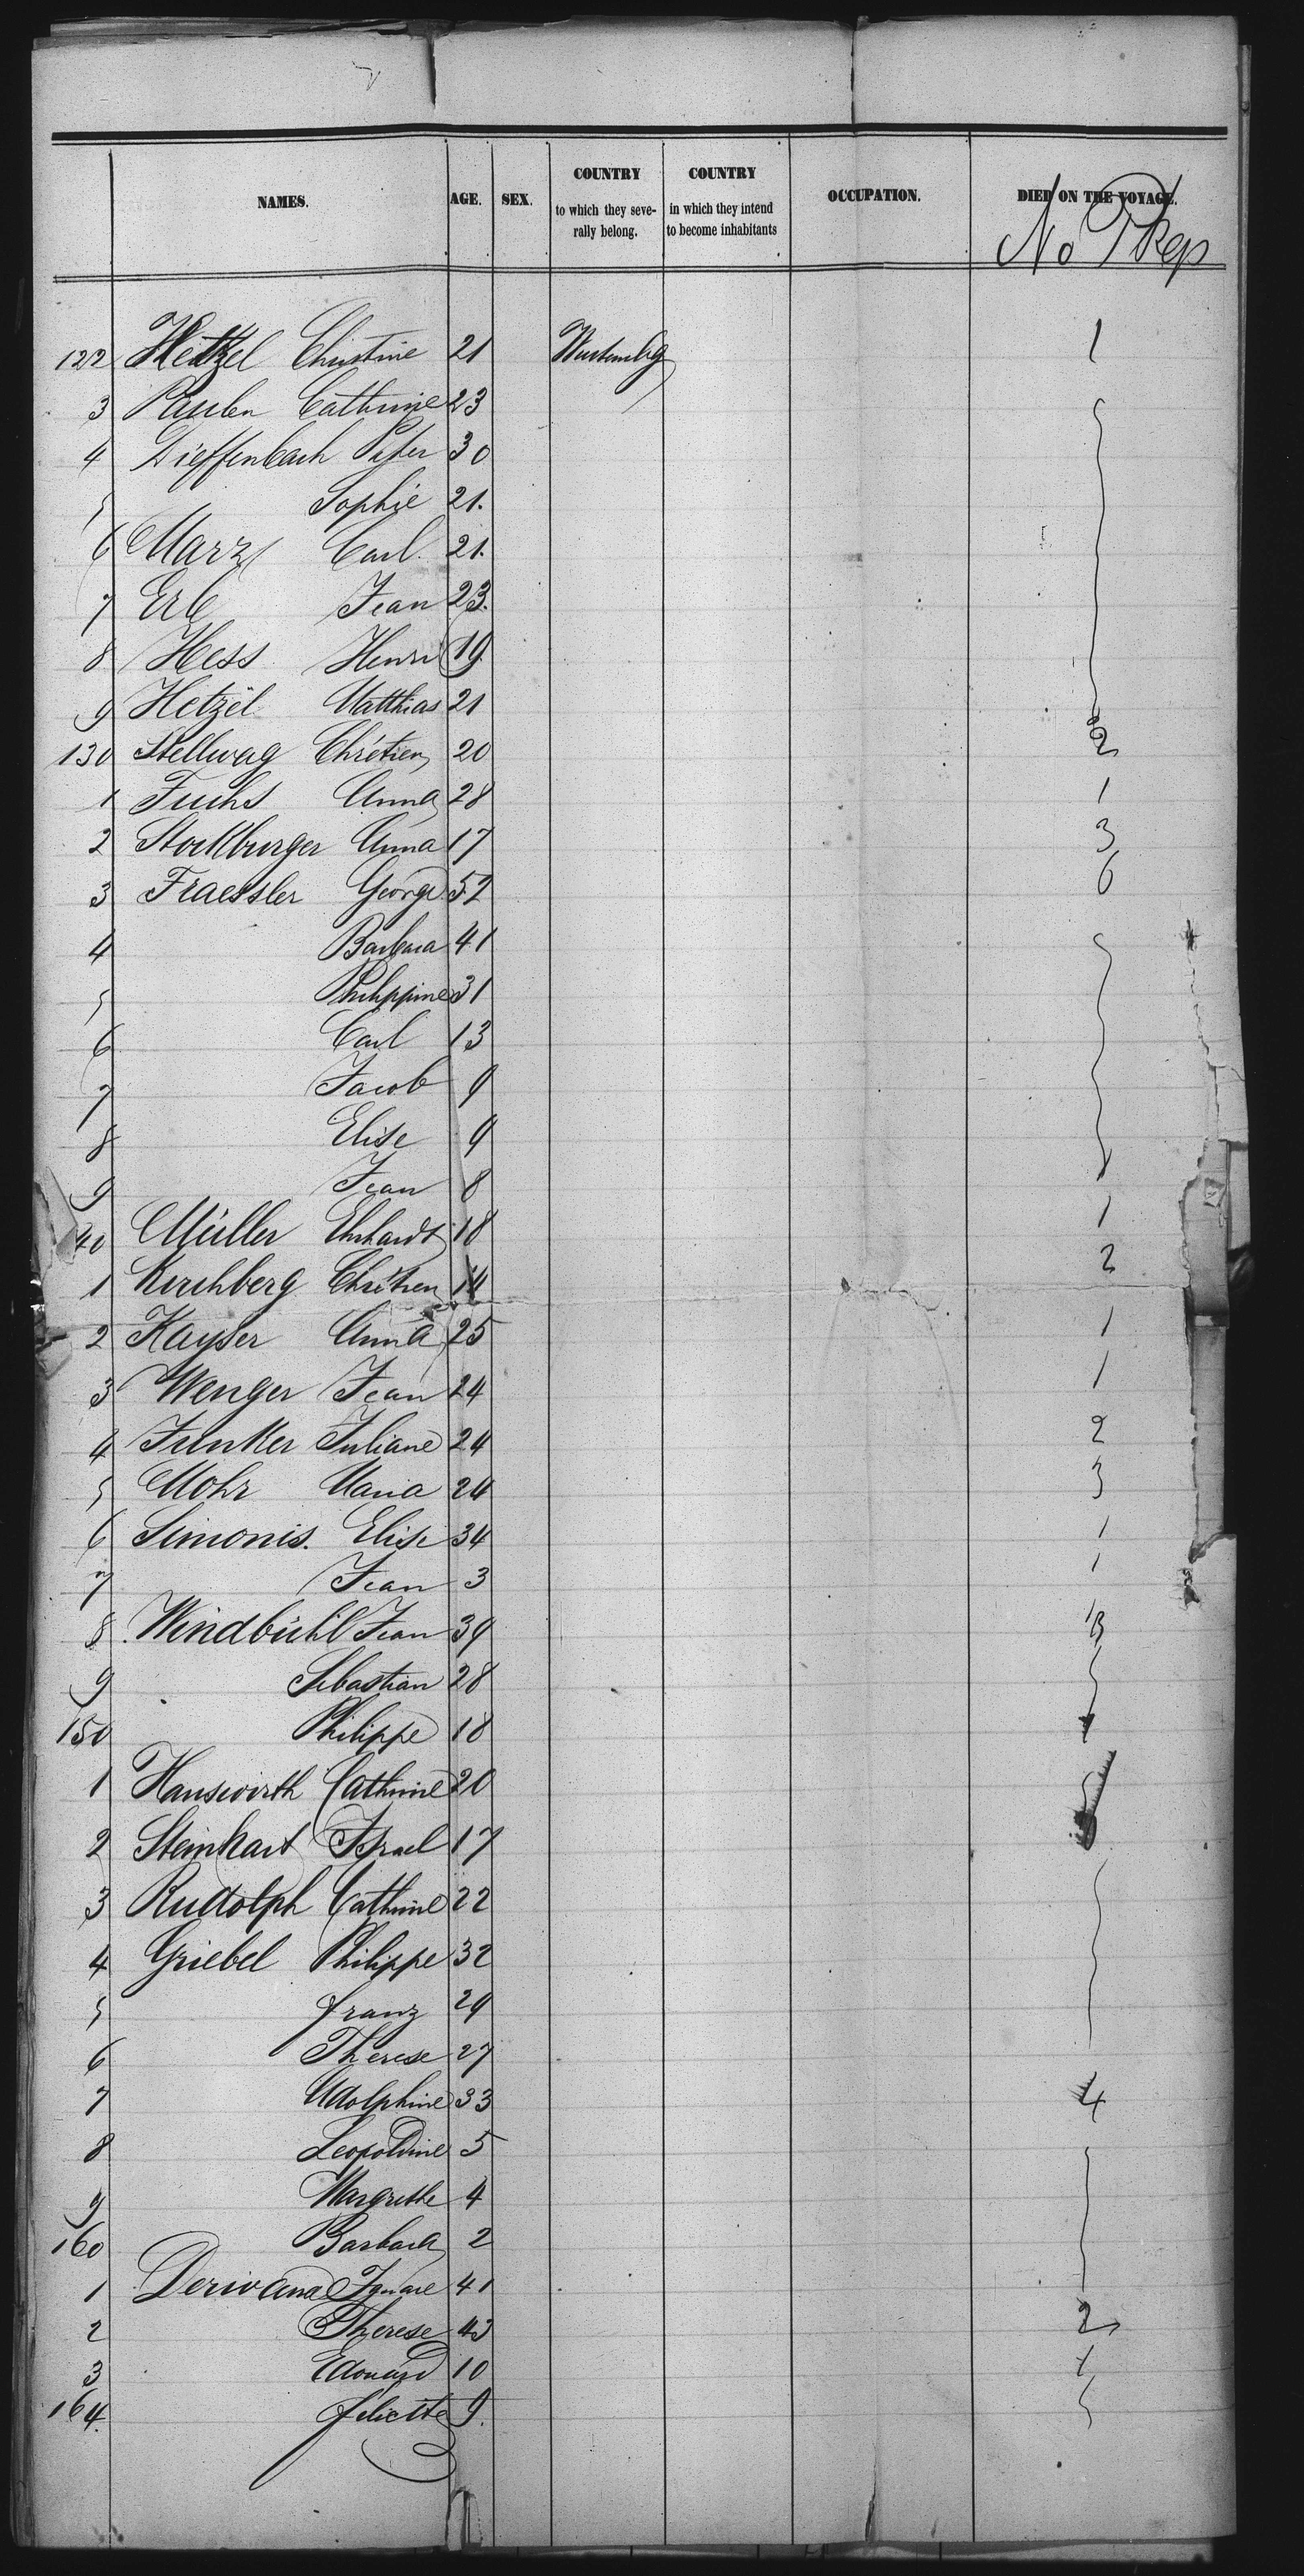 NAMES. AGE. SEX. COUNTRY to which they seve- rally belong. COUNTRY in which they intend to become inhabitants OCCUPATION. DIED ON THE VOYAGE.
No Pkgs
122 Hetzel Christine 21 Wurtembg 1
3 Cathrine 23
4 Dieffenbach Peter 30
5 Sophie 21.
6 Marz Carl 21.
7 Erb Jean 23.
8 Hess Henri 19
9 Hetzel Matthias 21
130 Stellwag Chrétien 20 2
1 Fuchs Anna 28 1
2 Stockburger Anna 17 3
3 Fraessler George 52 6
4 Barbara 41
5 Philippine 31
6 Carl 13
7 Jacob 9
8 Elise 9
9 Jean 8
40 Müller Ehrhardt 18 1
1 Kirchberg Chrétien 14 2
2 Kayser Anna 25 1
3 Wenger Jean 24 1
4 Junker Juliane 24 2
5 Mohr Maria 24 3
6 Simonis. Elise 34 1
7 Jean 3 1
8 Windbühl Jean 39
9 Sebastian 28
150 Philippe 18
1 Hauswirth Cathrine 20
2 Steinhart Israel 17
3 Rudolph Cathrine 22
4 Griebel Philippe 32
5 Franz 29
6 Therese 27
7 Adolphine 33 4
8 Leopoldine 5
9 Margrethe 4
160 Barbara 2
1 Ignace 41
2 Therese 43 2
3 Edouard 10 1
164. 9.